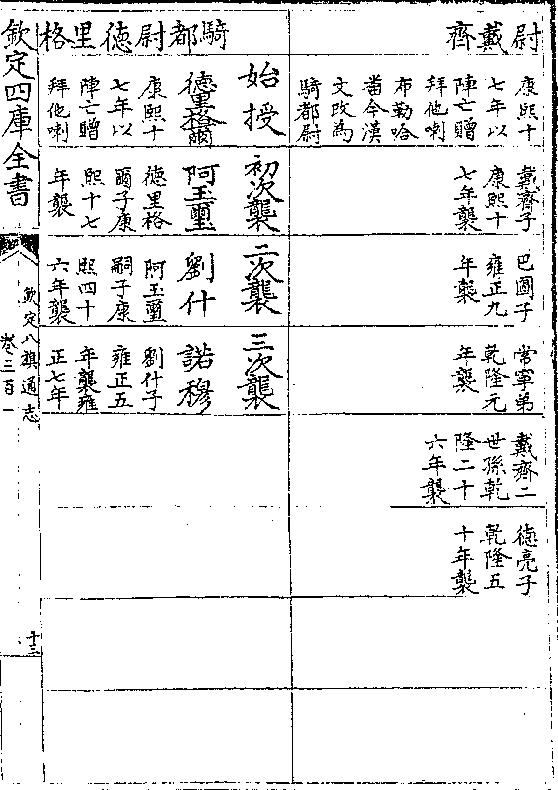 尉戴齊
康熙十
七年以
陣亡贈
拜他喇
布勒哈
當今漢
文改為
騎都尉
戴齊子
康熙十
七年襲
巴圖子
雍正九
年襲
常寧弟
乾隆元
年襲
戴齊二
世孫乾
隆二十
六年襲
德亮子
乾隆五
十年襲
騎都尉德里格
始授
德里格爾
康熙十
七年以
陣亡贈
拜他喇
初次襲
阿玉璽
德里格
爾子康
熙十七
年襲
二次襲
劉什
阿玉璽
嗣子康
熙四十
六年襲
三次襲
諾穆
劉什子
雍正五
年襲雍
正七年
欽定四庫全書
欽定八旗通志
卷三百一
十三